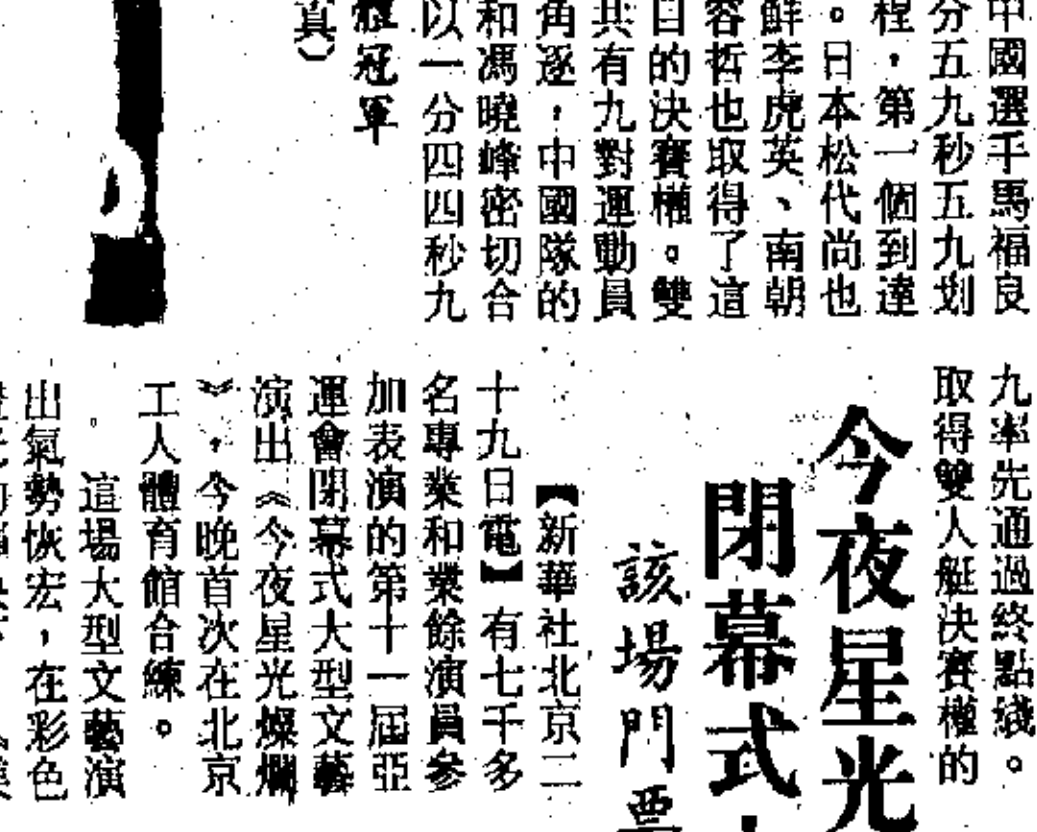 中國選手馬福良
分五九秒五九划
程，第一個到達
。日本松代尚也
鮮李虎英、南朝
容哲也取得了這
目的決賽權。雙
共有九對運動員
角逐，中國隊的
和馮曉峰密切合
以一分四四秒九
冠軍
真）
九率先通過終點綫。
取得雙人艇決賽權的
今夜星光
閉幕式
該場門票
【新華社北京二
十九日電】有七千多
名專業和業餘演員參
加表演的第十一屆亞
運會閉幕式大型文藝
演出《今夜星光燦爛
》，今晚首次在北京
工人體育館合練。
這場大型文藝演
出氣勢恢宏，在彩色